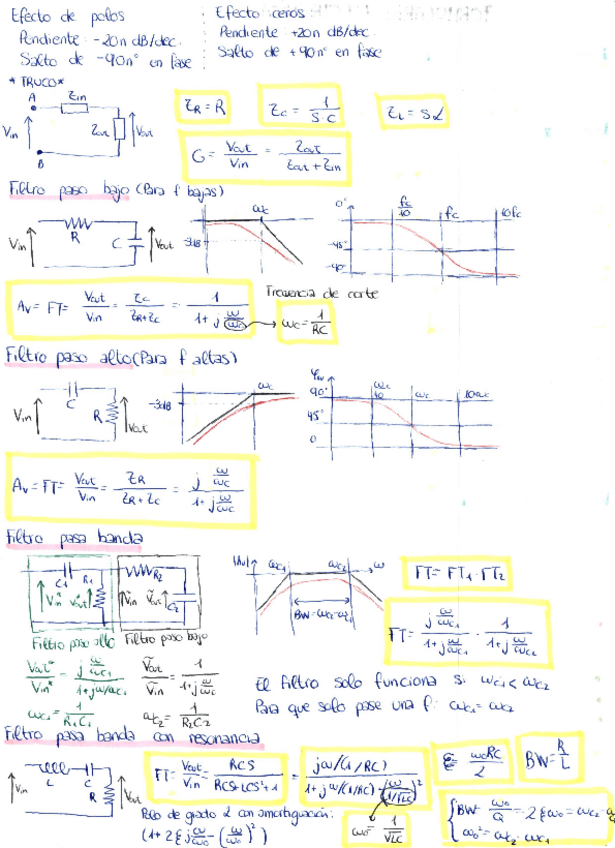 Efecto de polos
Pendiente: -20n dB/dec.
Salto de -90n° en fase
Efecto ceros
Pendiente +20n dB/dec
Salto de +90n° en fase
*TRUCO*
A Zin
Vin Zout Vout
B
Z_R = R
Z_C = 1/(S·C)
Z_L = SL
G = Vout/Vin = Zout/(Zout + Zin)
Filtro paso bajo (Para f bajas)
Vin R C Vout
-3dB ωc
0° fc/10 fc 10fc
-45°
-90°
Av = FT = Vout/Vin = Zc/(ZR+Zc) = 1/(1+j ω/ωc)
Frecuencia de corte
ωc = 1/RC
Filtro paso alto (Para f altas)
Vin C R Vout
-3dB ωc
90° ωc/10 ωc 10ωc
45°
0
Av = FT = Vout/Vin = ZR/(ZR+Zc) = (j ω/ωc)/(1+j ω/ωc)
Filtro pasa banda
C1 R1 Vin* Vout*
R2 C2
Filtro paso alto
Filtro paso bajo
Vout*/Vin* = (j ω/ωc1)/(1+jω/ωc1)
ωc1 = 1/(R1C1)
Ṽout/Ṽin = 1/(1+j ω/ωc)
ωc2 = 1/(R2C2)
|Av| ωc1 ωc2 ω
BW=ωc2-ωc1
FT = FT1 · FT2
FT = (j ω/ωc1)/(1+j ω/ωc1) · 1/(1+j ω/ωc2)
El filtro solo funciona si ωc1 < ωc2
Para que solo pase una f: ωc1 = ωc2
Filtro pasa banda con resonancia
Vin L C R Vout
FT = Vout/Vin = RCS/(RCS+LCS²+1) = (jω/(1/RC))/(1+jω/(1/RC)-(ω/(1/√LC))²)
Polo de grado 2 con amortiguación:
(1+2ξj ω/ω0 - (ω/ω0)²)
ω0 = 1/√LC
ξ = ω0RC/2
BW = R/L
BW = ω0/Q = 2ξω0 = ωc2 -
ω0² = ωc2 · ωc1